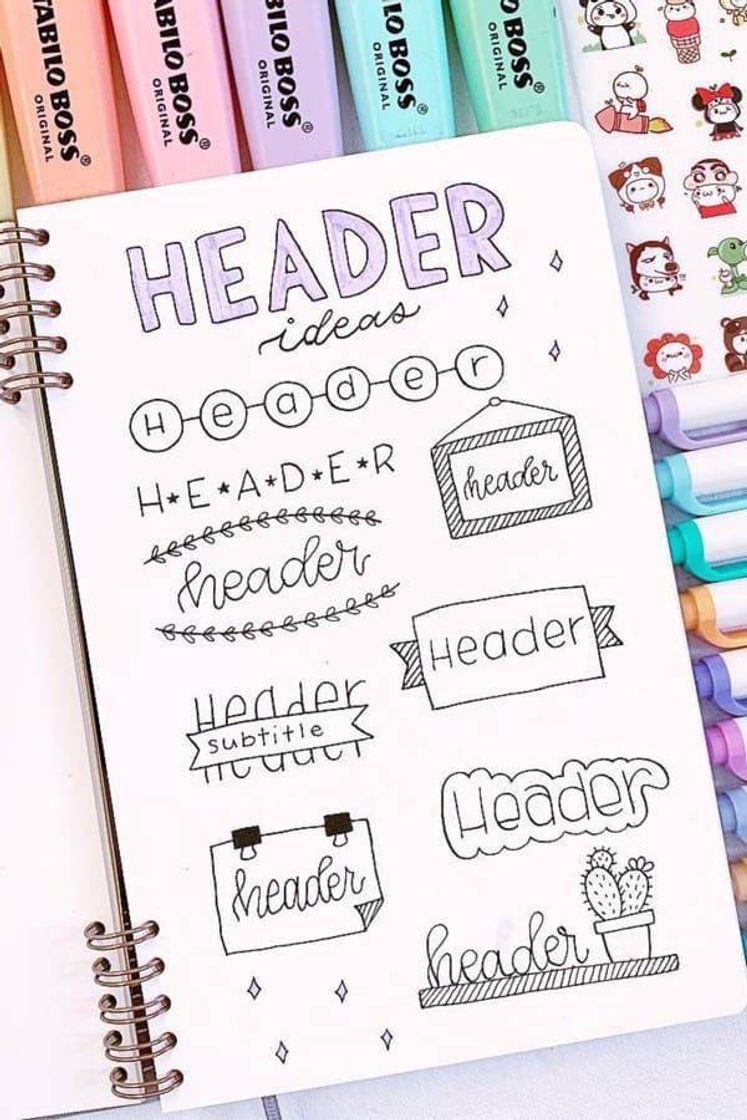 STABILO BOSS®
ORIGINAL
STABILO BOSS®
ORIGINAL
STABILO BOSS®
ORIGINAL
STABILO BOSS®
ORIGINAL
BOSS®
ORIGINAL
HEADER
ideas
Header
H★E★A★D★E★R
header
header
Header
Header
subtitle
Header
header
header